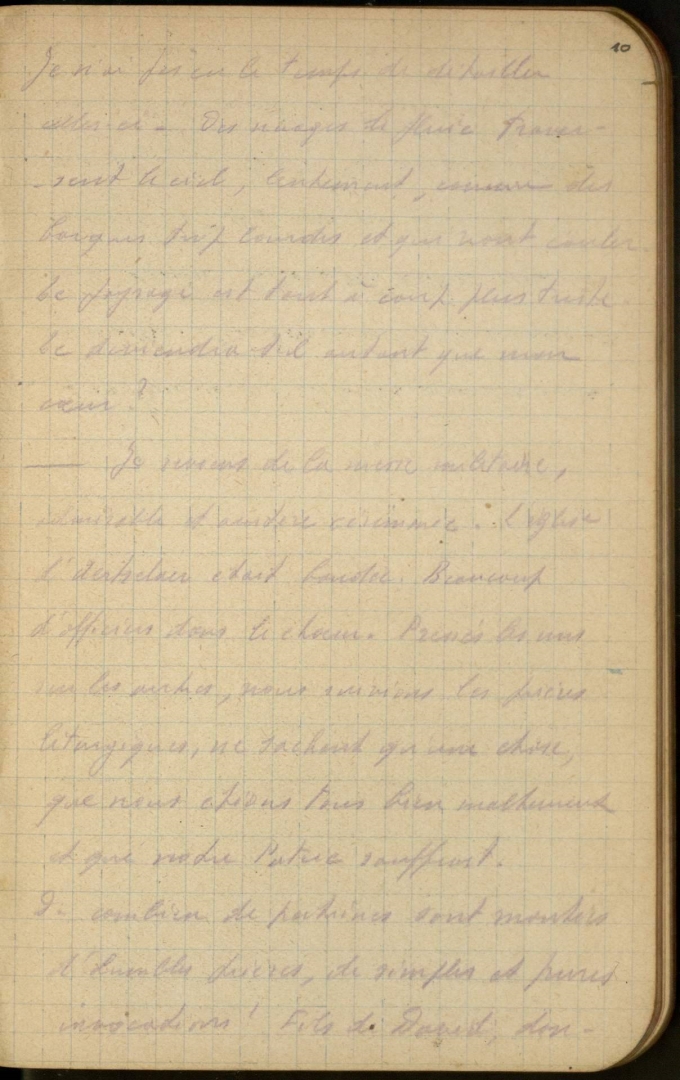 10
Je n'ai pas eu le temps de détailler
celles-ci. Des nuages de pluie traver-
-sent le ciel, lentement, comme des
barques trop lourdes et qui vont couler.
Le paysage est tout à coup plus triste.
Le deviendra-t-il autant que mon
cœur ?
— Je reviens de la messe militaire,
admirable et austère cérémonie. L'église
d'Aertselaer était bondée. Beaucoup
d'officiers dans le chœur. Pressés les uns
sur les autres, nous suivions les prières
liturgiques, ne sachant qu'une chose,
que nous étions tous bien malheureux
et que notre Patrie souffrait.
De combien de poitrines sont montées
d'humbles prières, de simples et pures
invocations ! Fils de David, don-